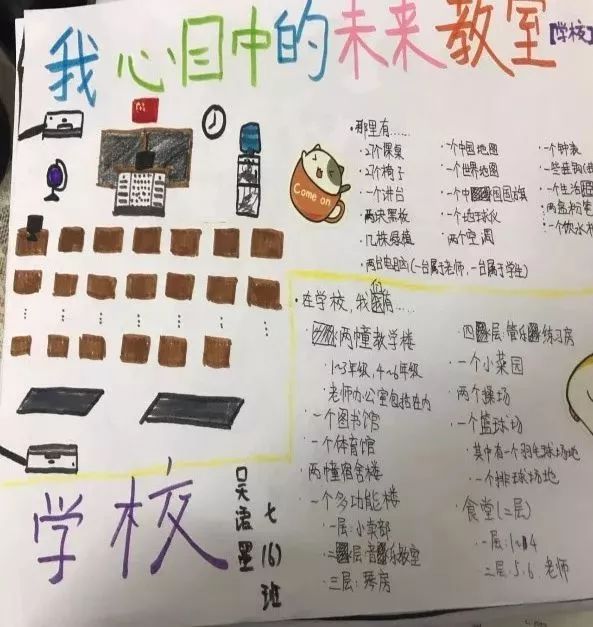 我心目中的未来教室[学校]
·那里有……
·37个课桌
·37个椅子
·一个讲台
·两块黑板
·几株绿植
·两台电脑(一台属于老师,一台属于学生)
·一个中国地图
·一个世界地图
·一个中国国旗
·一个地球仪
两个空调
·一个钟表
·一个生活
·两盒粉笔
·一个饮水机
Come on
·在学校,我还有……
·两幢教学楼
·1~3年级,4~6年级
老师办公室包括在内
·一个图书馆
一个体育馆
两幢宿舍楼
·一个多功能楼
·一层:小卖部
·二层:音乐教室
·三层:琴房
·四层:管乐练习房
·一个小菜园
·两个操场
·一个篮球场
·其中有一个羽毛球场地
·一个排球场地
·食堂(二层)
·一层:1~4
二层:5、6、老师
学校
吴语墨
七(6)班